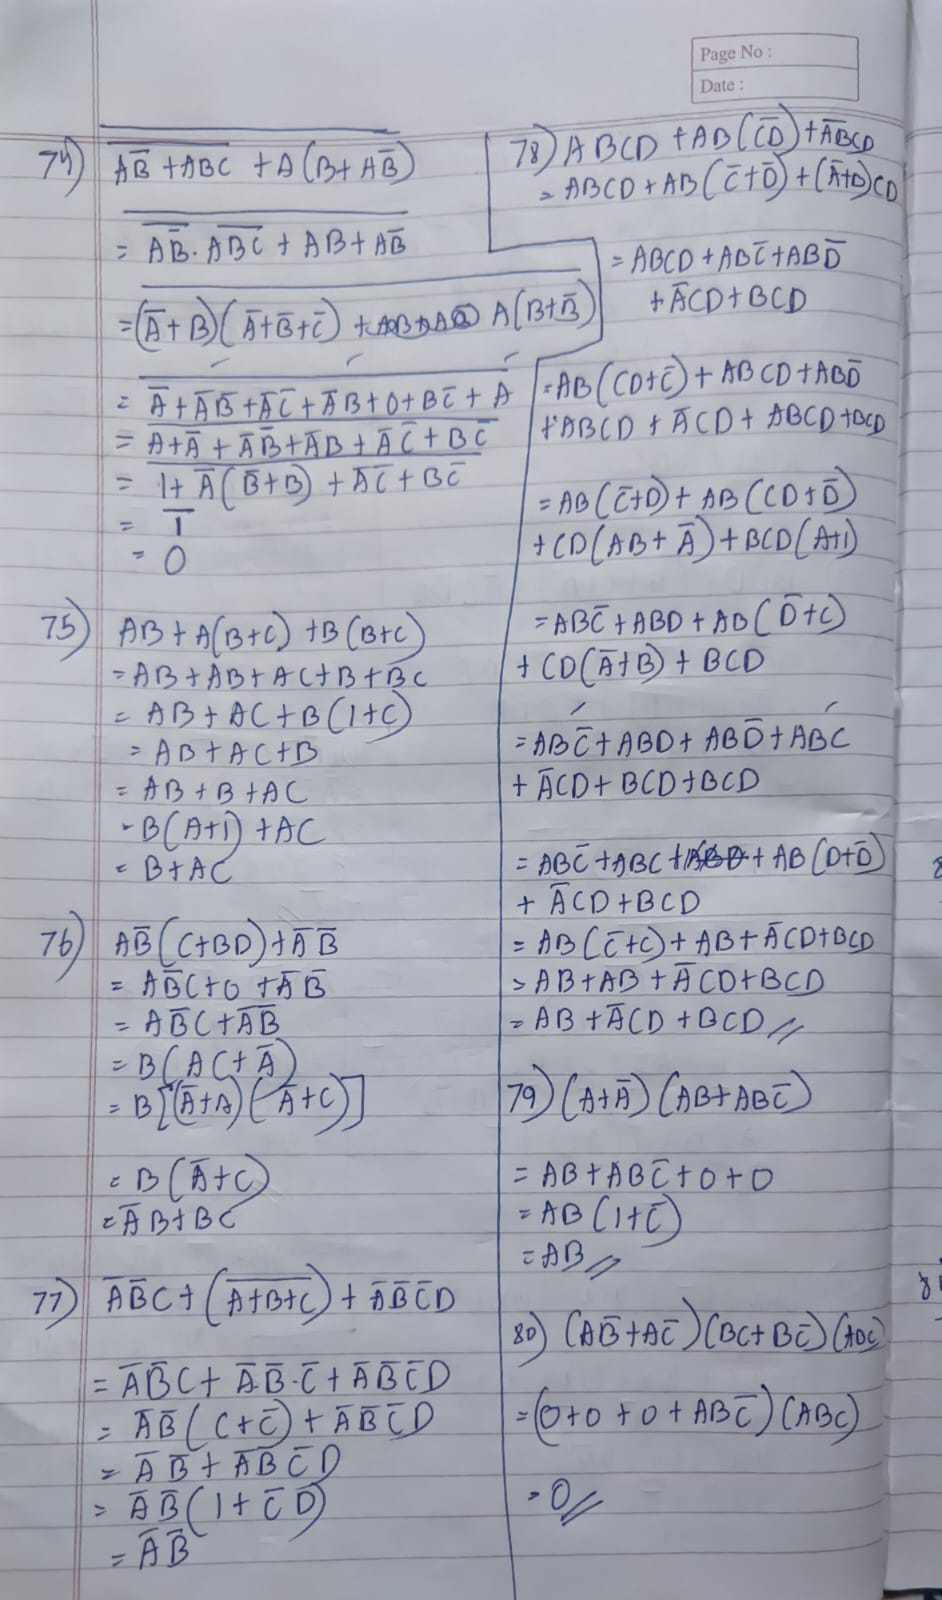 Page No :
Date :
74) \overline{\overline{A\overline{B} + ABC} + A(B + A\overline{B})}
= \overline{\overline{A\overline{B}} . \overline{ABC} + AB + A\overline{B}}
= \overline{(\overline{A} + B)(\overline{A} + \overline{B} + \overline{C}) + A(B + \overline{B})}
= \overline{\overline{A} + \overline{A}\overline{B} + \overline{A}\overline{C} + \overline{A}B + 0 + B\overline{C} + A}
= \overline{A + \overline{A} + \overline{A}\overline{B} + \overline{A}B + \overline{A}\overline{C} + B\overline{C}}
= \overline{1 + \overline{A}(\overline{B} + B) + \overline{A}\overline{C} + B\overline{C}}
= \overline{1}
= 0
75) AB + A(B+C) + B(B+C)
= AB + AB + AC + B + BC
= AB + AC + B(1+C)
= AB + AC + B
= AB + B + AC
= B(A+1) + AC
= B + AC
76) A\overline{B}(C+BD) + \overline{A}\overline{B}
= A\overline{B}C + 0 + \overline{A}\overline{B}
= A\overline{B}C + \overline{A}\overline{B}
= B(AC + \overline{A})
= B[(\overline{A}+A)(\overline{A}+C)]
= B(\overline{A}+C)
= \overline{A}B + BC
77) \overline{A}\overline{B}C + (\overline{A+B+C}) + \overline{A}\overline{B}\overline{C}D
= \overline{A}\overline{B}C + \overline{A}.\overline{B}.\overline{C} + \overline{A}\overline{B}\overline{C}D
= \overline{A}\overline{B}(C+\overline{C}) + \overline{A}\overline{B}\overline{C}D
= \overline{A}\overline{B} + \overline{A}\overline{B}\overline{C}D
= \overline{A}\overline{B}(1 + \overline{C}D)
= \overline{A}\overline{B}
78) ABCD + AB(\overline{CD}) + \overline{AB}CD
= ABCD + AB(\overline{C}+\overline{D}) + (\overline{A}+B)CD
= ABCD + AB\overline{C} + AB\overline{D}
+ \overline{A}CD + BCD
= AB(CD+\overline{C}) + ABCD + AB\overline{D}
+ ABCD + \overline{A}CD + ABCD + BCD
= AB(\overline{C}+D) + AB(CD+\overline{D})
+ CD(AB+\overline{A}) + BCD(A+1)
= AB\overline{C} + ABD + AB(\overline{D}+C)
+ CD(\overline{A}+B) + BCD
= AB\overline{C} + ABD + AB\overline{D} + ABC
+ \overline{A}CD + BCD + BCD
= AB\overline{C} + ABC + AB(D+\overline{D})
+ \overline{A}CD + BCD
= AB(\overline{C}+C) + AB + \overline{A}CD + BCD
= AB + AB + \overline{A}CD + BCD
= AB + \overline{A}CD + BCD //
79) (A+\overline{A})(AB+AB\overline{C})
= AB + AB\overline{C} + 0 + 0
= AB(1+\overline{C})
= AB //
80) (A\overline{B}+A\overline{C})(BC+B\overline{C})(ABC)
= (0+0+0+AB\overline{C})(ABC)
= 0 //